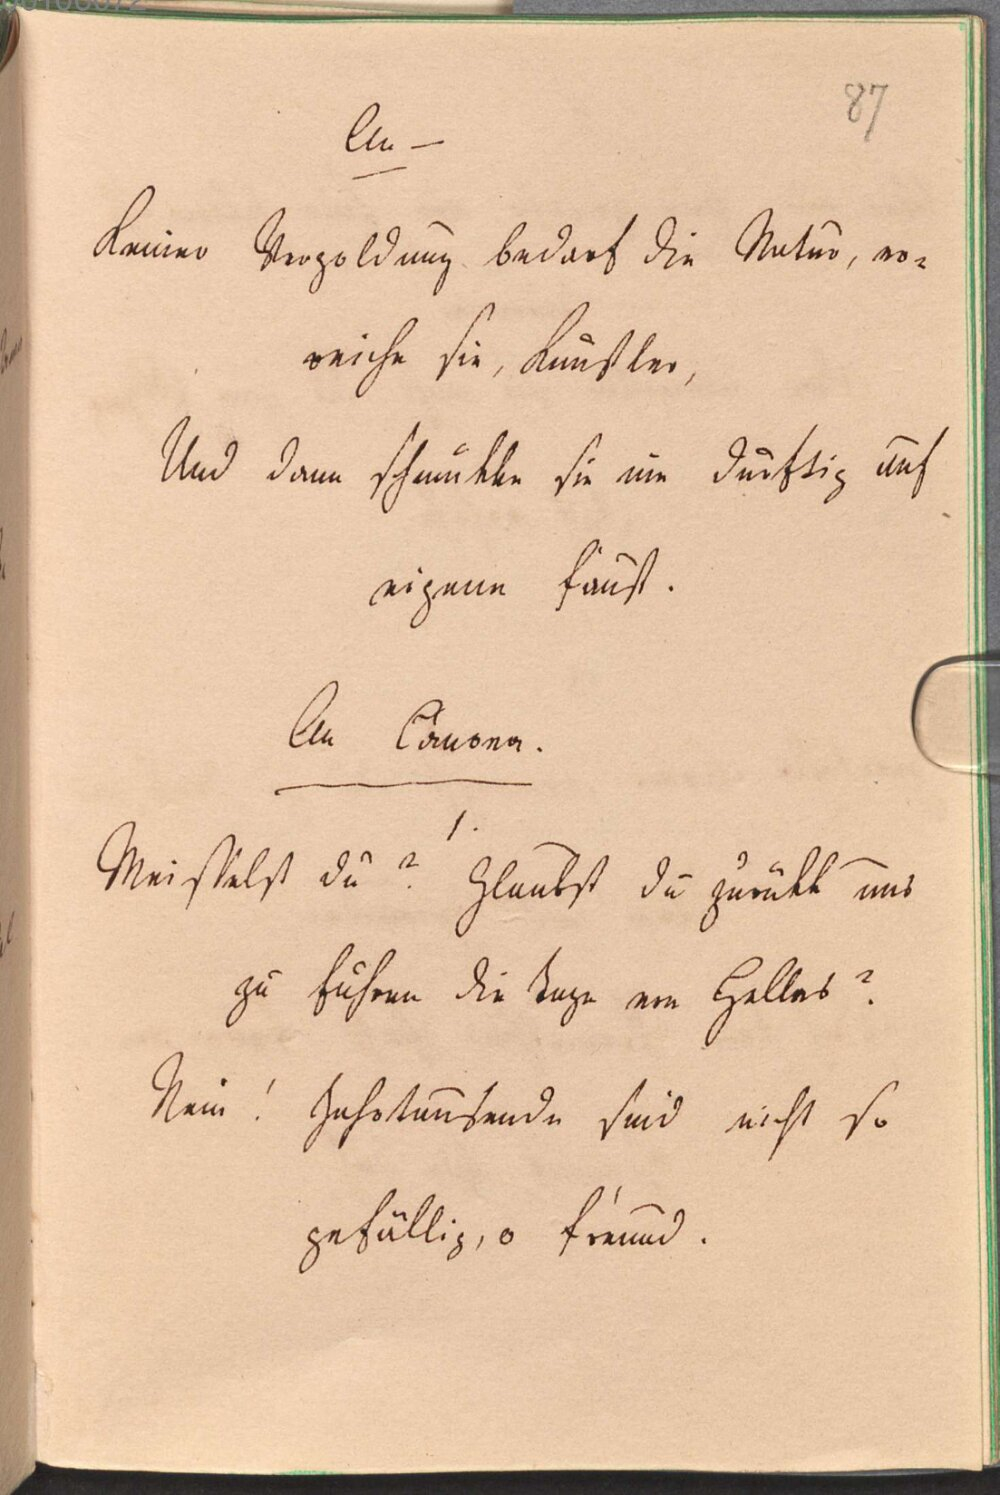 87
An —
Keiner Vergoldung bedarf die Natur, er=
reiche sie, Künstler,
Und dann schmükke sie nie dürftig auf
eigene Faust.
An Canova.
1.
Meisselst du? Glaubst du zurükk uns
zu führen die Tage von Hellas?
Nein! Jahrtausende sind nicht so
gefällig, o Freund.